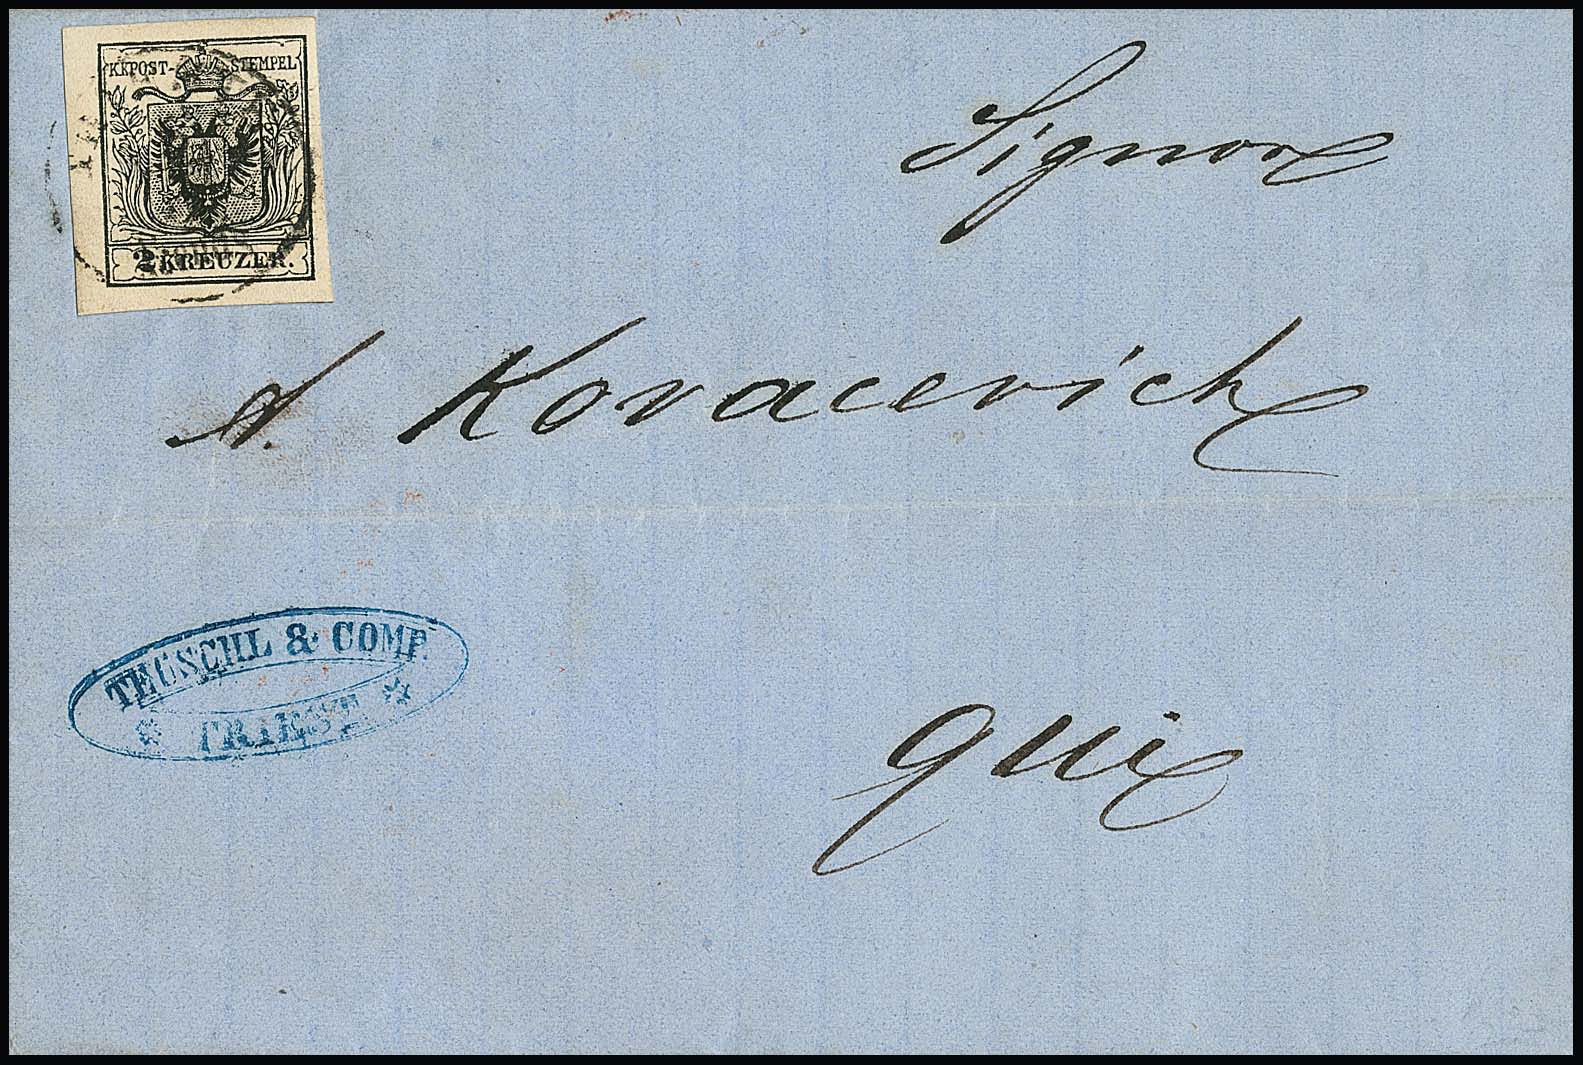 KKPOST-STEMPEL
2 KREUZER.
Signor
A. Kovacevich
TEUSCHL & COMP.
TRIEST
qui